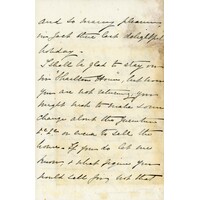 and so many pleasures
in just these last delightful
holiday.
I shall be glad to stay on
in Charlton House, but now
you are not returning you
might wish to make some
change about the furniture
&c &c or even to sell the
house. If you do let me
know & what figure you
would call for, not that